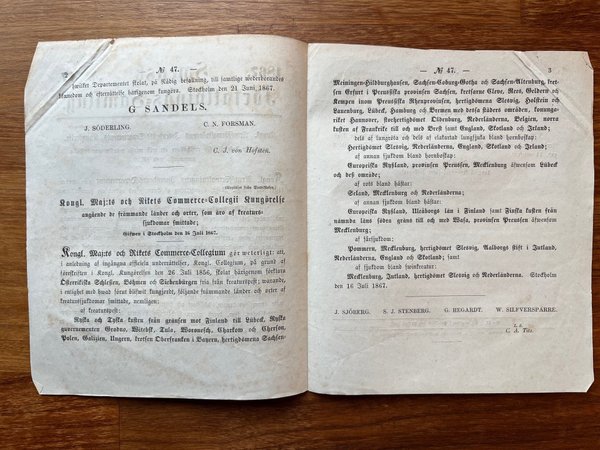 2
№ 47.
swilket Departementet ålåt, på Nådig befallning, till samtlige wederbörandes
kännedom och efterrättelse härigenom kungöra. Stockholm den 21 Juni, 1867.
G SANDELS.
J. SÖDERLING.
C. N. FORSMAN.
C. J. von Hofsten.
Kongl. Maj:ts och Rikets Commerce-Collegii Kungörelse
angående de främmande länder och orter, som äro af kreaturs-
sjukdomar smittade;
Gifwen i Stockholm den 16 Juli 1867.
Kongl. Maj:ts och Rikets Commerce-Collegium gör weterligt: att,
i anledning af ingångna officiela underrättelser, Kongl. Collegium, på grund af
föreskriften i Kongl. Kungörelsen den 26 Juli 1856, skolat härigenom förklara
Österrikiska Schlesien, Böhmen och Siebenbürgen fria från kreaturspest; wanande,
i enlighet med hwad förut blifwit kungjordt, följande främmande länder och orter af
kreaturssjukdomar smittade, nemligen:
af kreaturspest:
Ryska och Tyska kusten från gränsen mot Finland till Lübeck, Ryska
guvernementen Grodno, Witebsk, Tula, Woronesch, Charkow och Cherson,
Polen, Galizien, Ungern, kretsen Oberfranken i Bayern, hertigdömena Sachsen-
№ 47.
3
Meiningen-Hildburghausen, Sachsen-Coburg-Gotha och Sachsen-Altenburg, kret-
sen Erfurt i Preussiska provinsen Sachsen, kretsarne Cleve, Mors, Geldern och
Kempen inom Preussiska Rhenprovinsen, hertigdömena Slesvig, Holstein och
Lauenburg, Lübeck, Hamburg och Bremen med dessa Läders områden, konung-
riket Hannover, storhertigdömet Oldenburg, Nederländerna, Belgien, norra
kusten af Frankrike till och med Brest samt England, Skotland och Irland;
dels af lungröta och dels af elakartad lungsjuka bland hornboskap:
Hertigdömet Slesvig, Nederländerna, England, Skotland och Irland;
af annan sjukdom bland hornboskap:
Europeiska Ryssland, Preussiska provinsen Preussen, Mecklenburg äfwensom Lübeck
och dess område;
af rots bland hästar:
Seland, Mecklenburg och Nederländerna;
af annan sjukdom bland hästar:
Europeiska Ryssland, Uleåborgs län i Finland samt Finska kusten från
nämnda läns södra gräns till och med Wasa, provinsen Preussen äfwensom
Mecklenburg;
af fårsjukdom:
Pommern, Mecklenburg, hertigdömet Slesvig, Aalborgs stift i Jutland,
Nederländerna, England och Skotland; samt
af sjukdom bland swinkreatur:
Mecklenburg, Jutland, hertigdömet Slesvig och Nederländerna. Stockholm
den 16 Juli 1867.
J. SJÖBERG. S. J. STENBERG. G. REGARDT. W. SILFVERSPARRE.